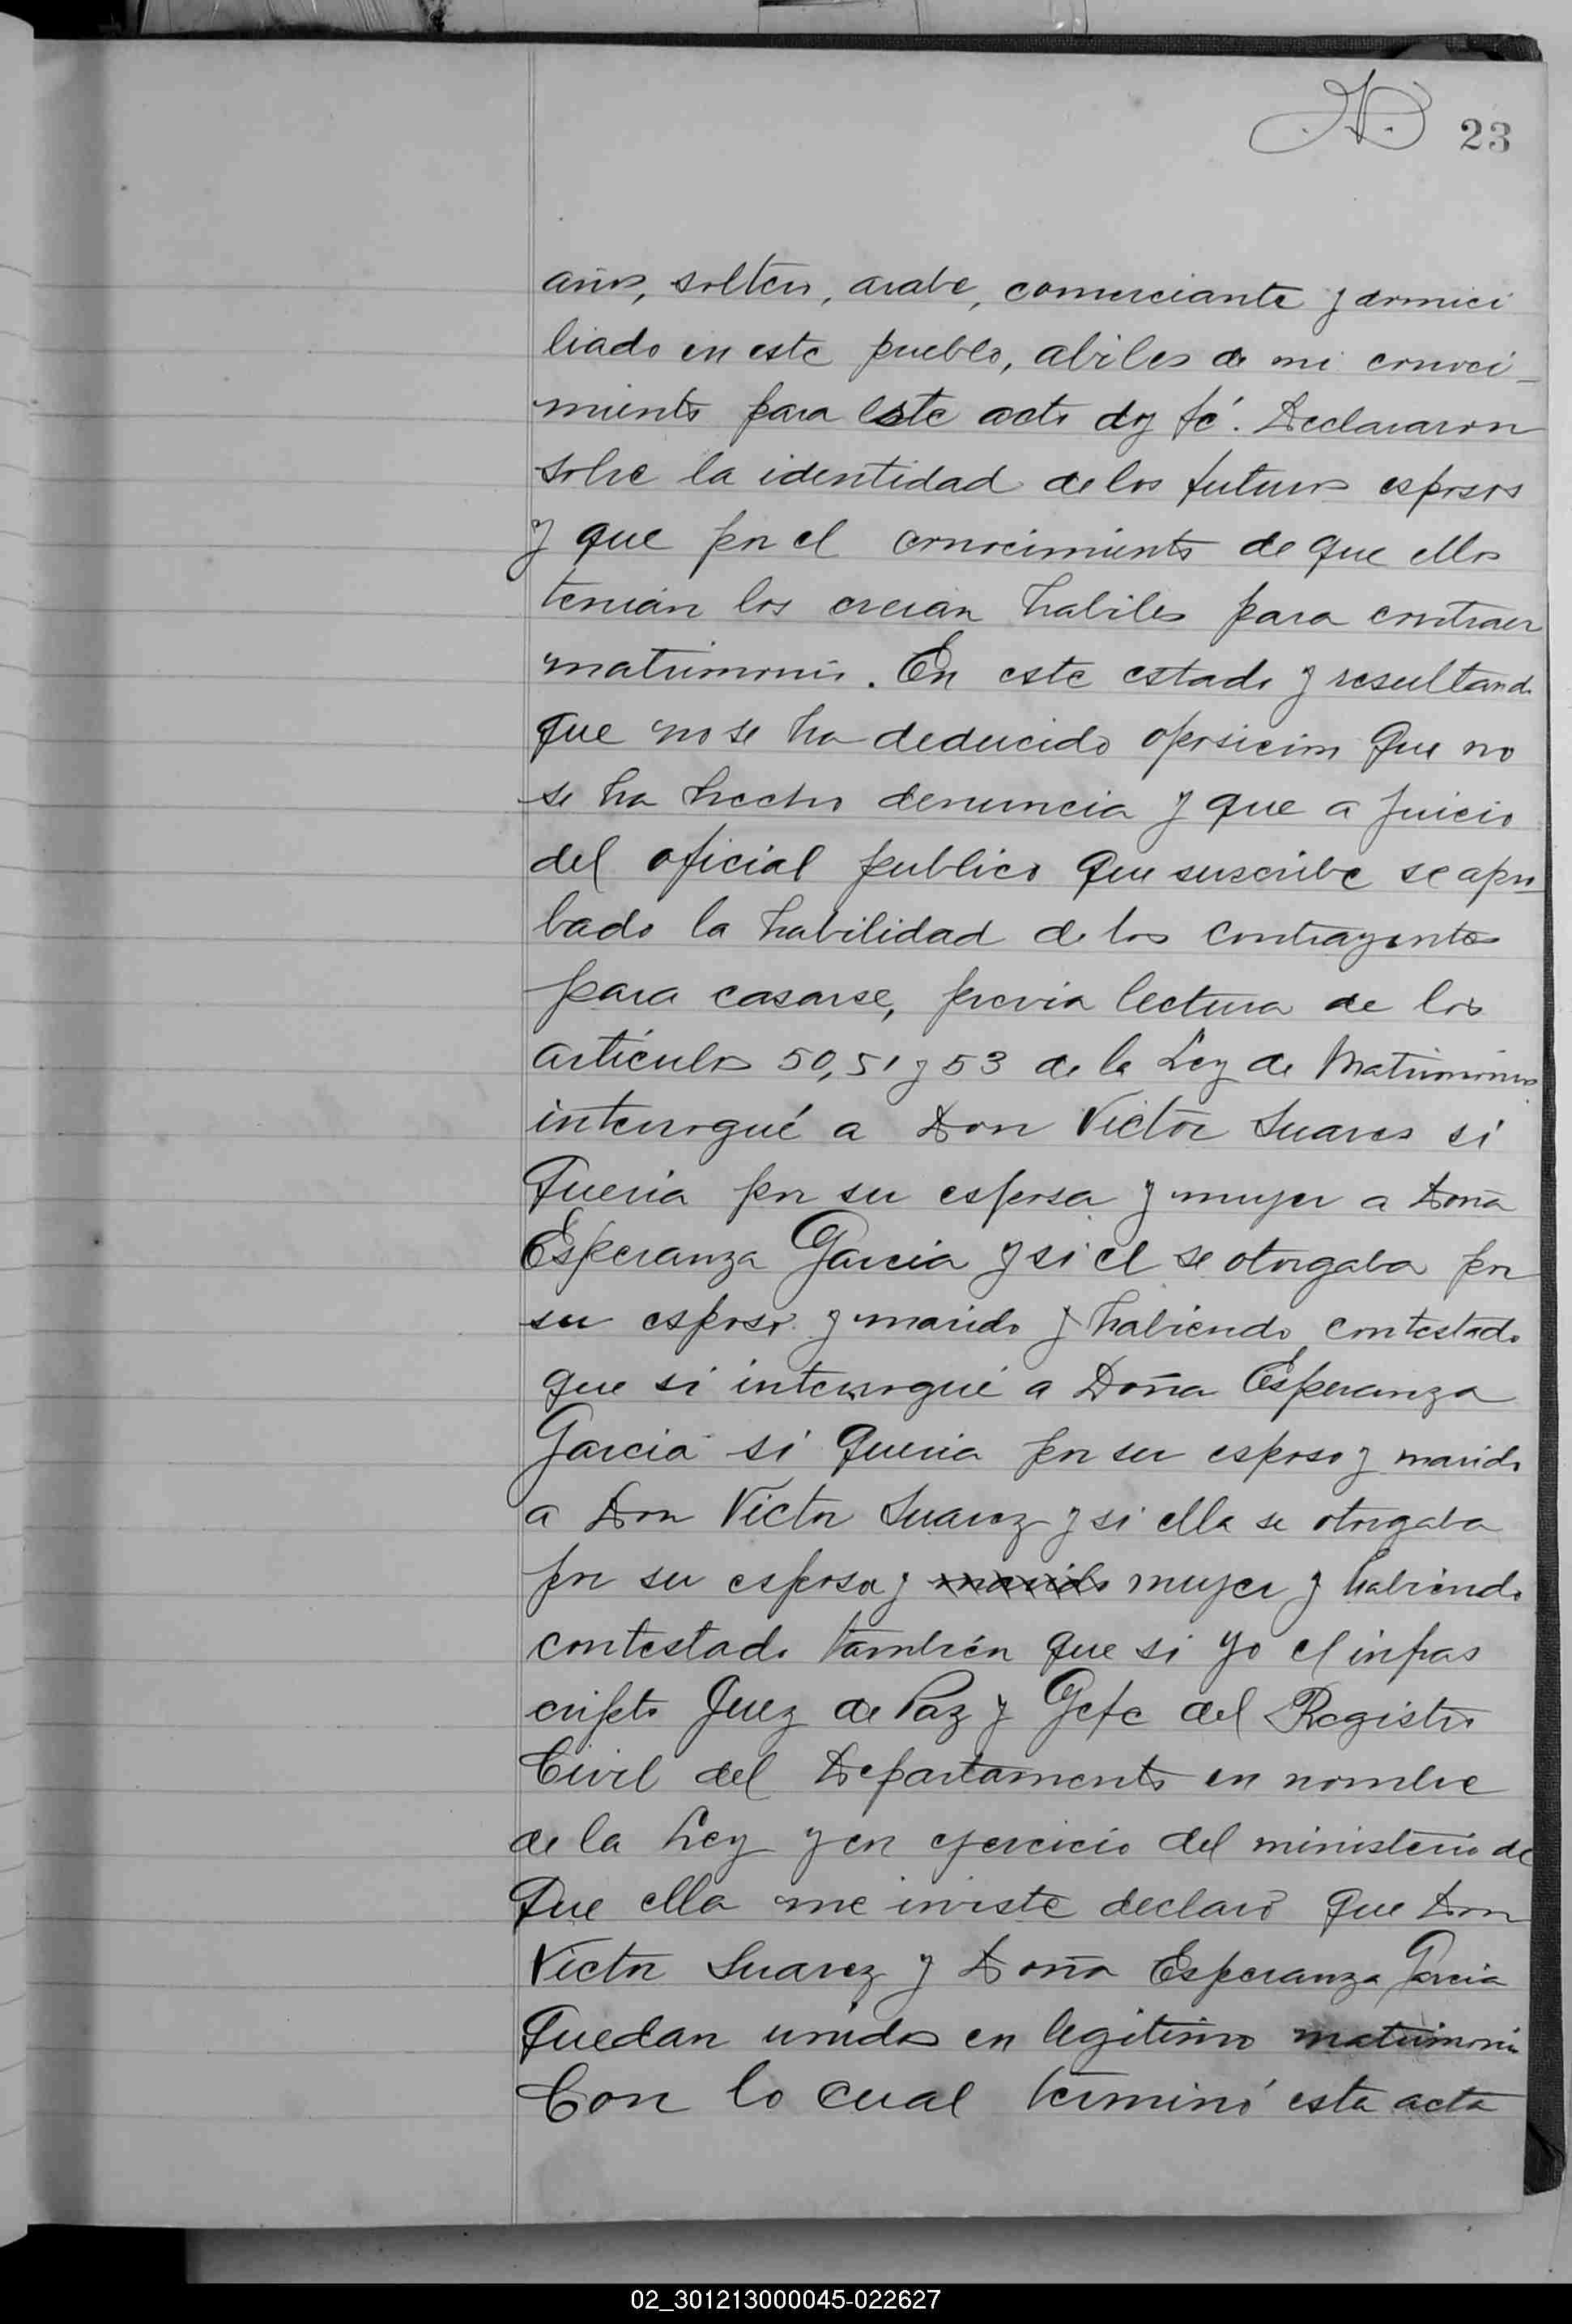 23
años, soltero, arabe, comerciante y domici
liado en este pueblo, abiles de mi conoci-
miento para este acto doy fé. Declararon
sobre la identidad de los futuros esposos
y que por el conocimiento de que ellos
tenian los creian habiles para contraer
matrimonio. En este estado y resultando
que no se ha deducido oposicion que no
se ha hecho denuncia y que a juicio
del oficial publico que suscribe se apro
bado la habilidad de los contrayentes
para casarse, previa lectura de los
artículos 50, 51 y 53 de la Ley de Matrimonios
interrogué a Don Victor Suares si
queria por su esposa y mujer a Doña
Esperanza Garcia y si el se otorgaba por
su esposo y marido y habiendo contestado
que si interrogué a Doña Esperanza
Garcia si queria por su esposo y marido
a Don Victor Suarez y si ella se otorgaba
por su esposa y marido mujer y habiendo
contestado también que si yo el infras
cripto Juez de Paz y Gefe del Registro
Civil del Departamento en nombre
de la Ley y en ejercicio del ministerio de
que ella me inviste declaró que Don
Victor Suarez y Doña Esperanza Garcia
quedan unidos en legitimo matrimonio
Con lo cual terminó esta acta
02_301213000045-022627